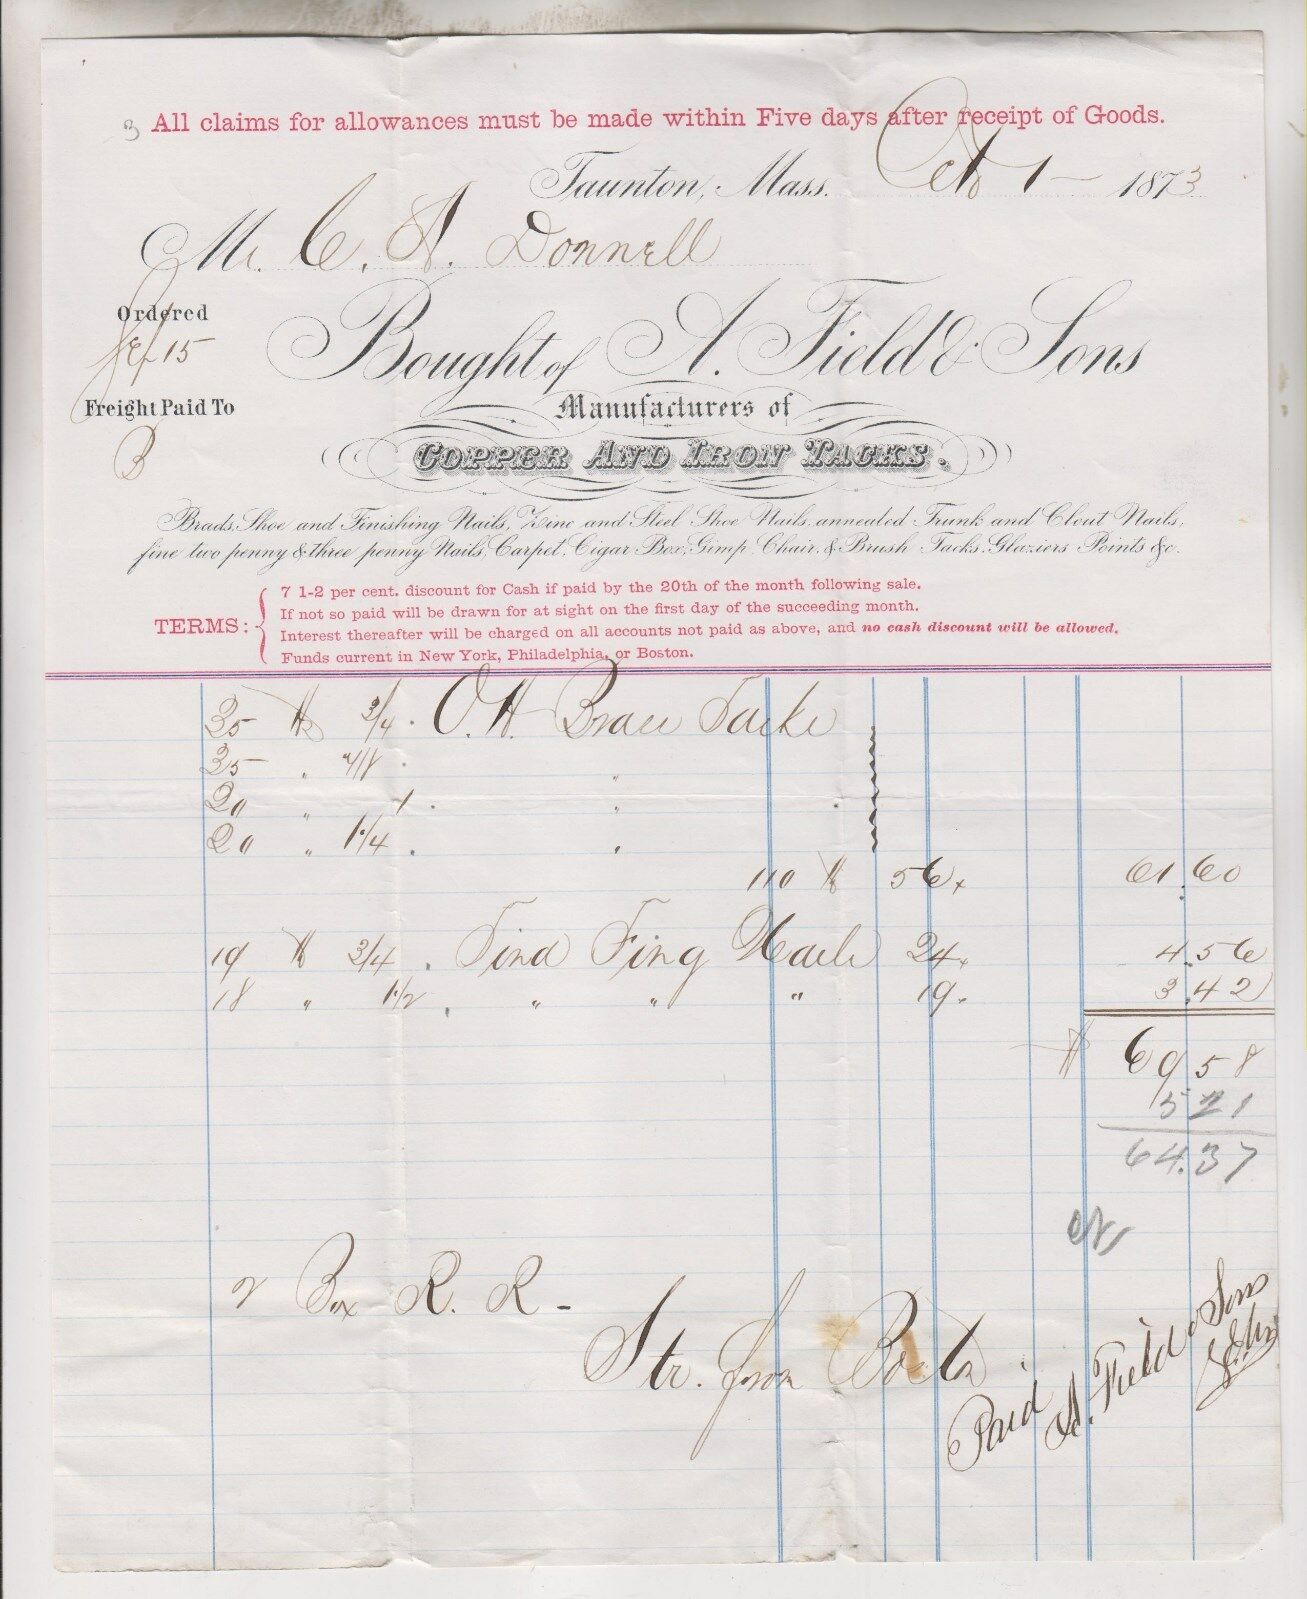 All claims for allowances must be made within Five days after receipt of Goods.
Taunton, Mass. Oct 1 1873
Mr. C. A. Donnell
Ordered
Sep 15
Bought of A. Field & Sons
Freight Paid To
B
Manufacturers of
COPPER AND IRON TACKS.
Brads, Shoe and Finishing Nails, Zinc and Steel Shoe Nails, annealed Trunk and Clout Nails,
fine two penny & three penny Nails, Carpet, Cigar Box, Gimp, Chair, & Brush Tacks, Glaziers Points &c.
TERMS:
7 1-2 per cent. discount for Cash if paid by the 20th of the month following sale.
If not so paid will be drawn for at sight on the first day of the succeeding month.
Interest thereafter will be charged on all accounts not paid as above, and no cash discount will be allowed.
Funds current in New York, Philadelphia, or Boston.
35 lb 3/4 . O. H. Brace Tacks
35 " 7/8 . "
20 " 1 . "
20 " 1 1/4 . "
110 lb 56 61.60
19 lb 3/4 . Fing Nails 24 4.56
18 " 1/2 . " " " 19 3.42
$ 69 58
5 21
64.37
2 Box R. R -
Str. from Boston
Paid
A. Field & Sons